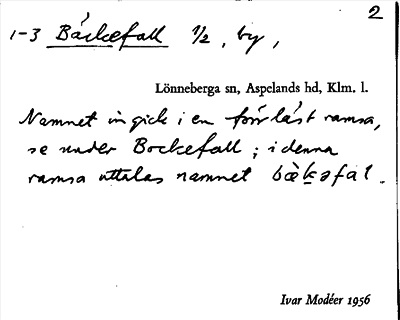 2
1-3 Báckefall 1/2, by,
Lönneberga sn, Aspelands hd, Klm. l.
Namnet ingick i en förrläst ramsa,
se under Bockefall; i denna
ramsa uttalas namnet
Ivar Modéer 1956